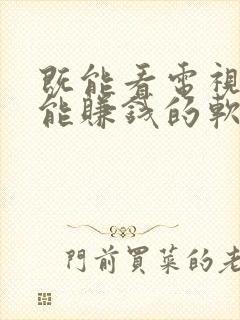 既能看電視
能賺錢的軟
門前買菜的老